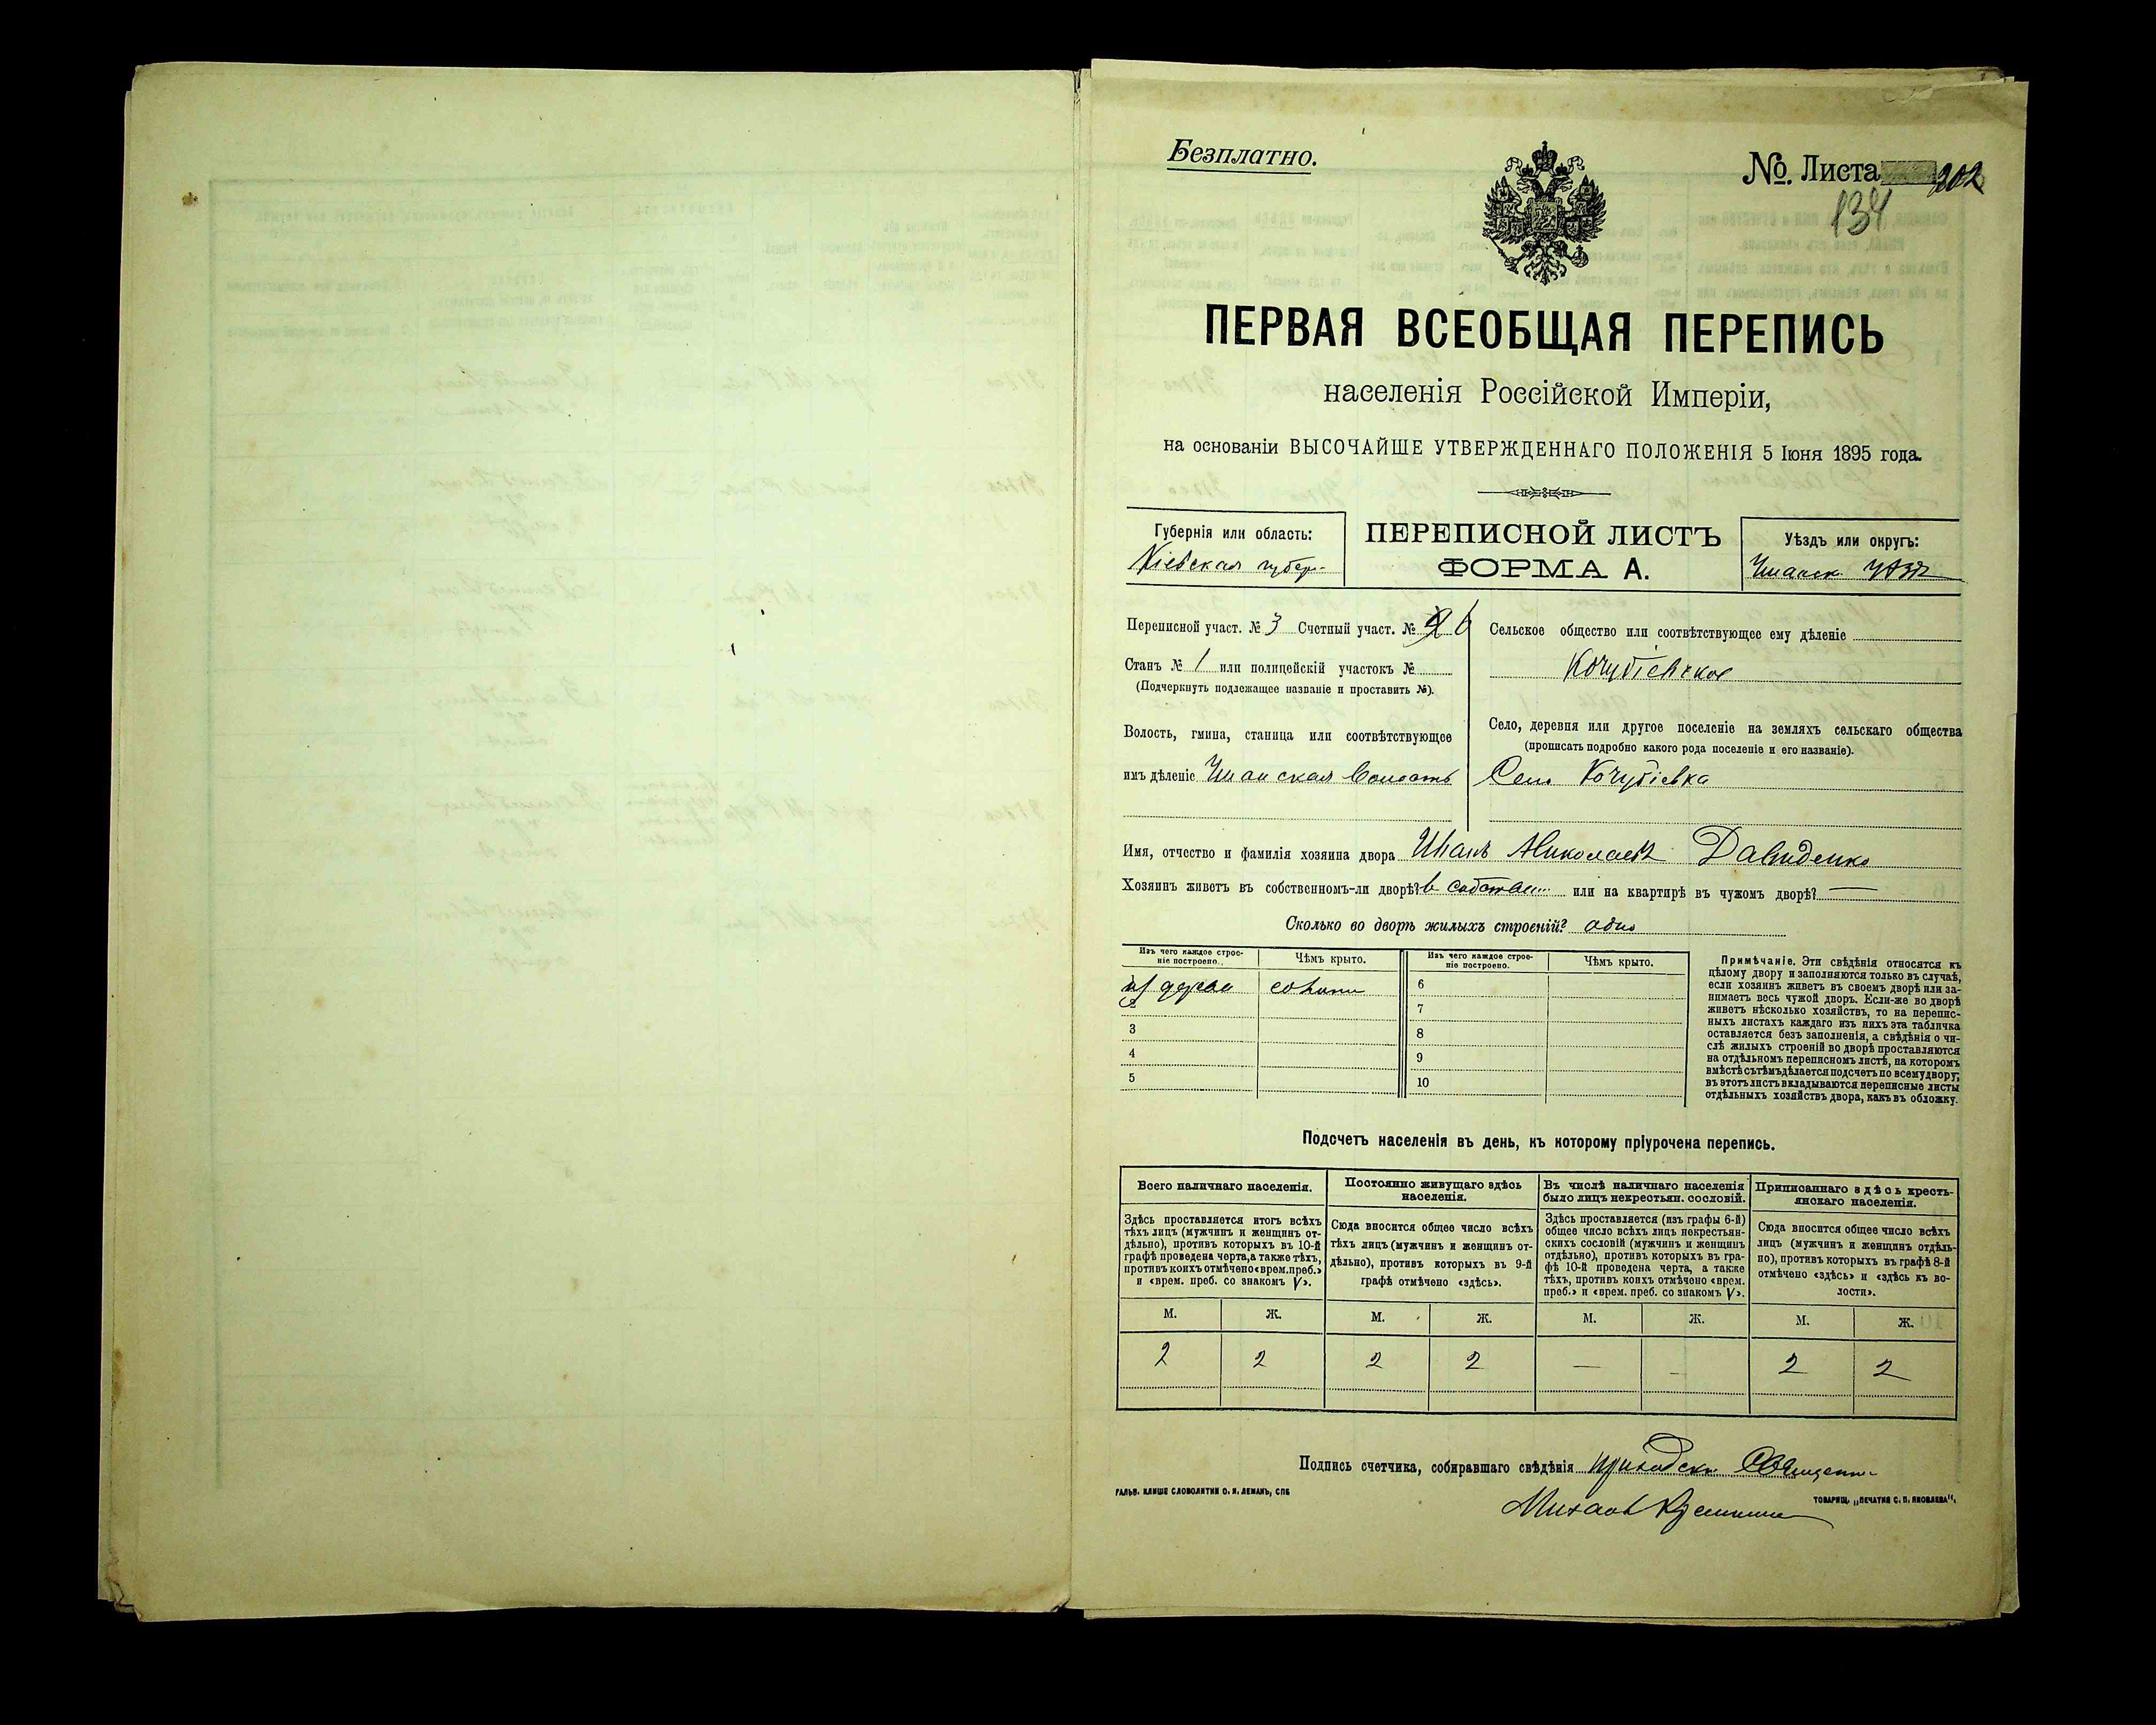 Безплатно.
№ Листа 202
134
ПЕРВАЯ ВСЕОБЩАЯ ПЕРЕПИСЬ
населенія Россійской Имперіи,
на основаніи ВЫСОЧАЙШЕ УТВЕРЖДЕННАГО ПОЛОЖЕНІЯ 5 Іюня 1895 года.
Губернія или область:
Кіевская губер-
ПЕРЕПИСНОЙ ЛИСТЪ
ФОРМА А.
Уѣздъ или округъ:
Уманск. уѣздъ
Переписной участ. № 3 Счетный участ. № 6
Станъ № 1 или полицейскій участокъ №
(Подчеркнуть подлежащее названіе и проставить №).
Волость, гмина, станица или соотвѣтствующее
имъ дѣленіе Уманская Волость
Сельское общество или соотвѣтствующее ему дѣленіе
Кочубіевское
Село, деревня или другое поселеніе на земляхъ сельскаго общества
(прописать подробно какого рода поселеніе и его названіе).
Село Кочубіевка
Имя, отчество и фамилія хозяина двора Иванъ Николаевъ Давиденко
Хозяинъ живетъ въ собственномъ-ли дворѣ? в собствен... или на квартирѣ въ чужомъ дворѣ? —
Сколько во дворѣ жилыхъ строеній? одно
Изъ чего каждое строе-
ніе построено.
Чѣмъ крыто.
Изъ чего каждое строе-
ніе построено.
Чѣмъ крыто.
из дерева
2
3
4
5
6
7
8
9
10
Примѣчаніе. Эти свѣдѣнія относятся къ
цѣлому двору и заполняются только въ случаѣ,
если хозяинъ живетъ въ своемъ дворѣ или за-
нимаетъ весь чужой дворъ. Если-же во дворѣ
живетъ нѣсколько хозяйствъ, то на перепис-
ныхъ листахъ каждаго изъ нихъ эта табличка
оставляется безъ заполненія, а свѣдѣнія о чи-
слѣ жилыхъ строеній во дворѣ проставляются
на отдѣльномъ переписномъ листѣ, на которомъ
вмѣстѣ съ тѣмъ дѣлается подсчетъ по всему двору;
въ этотъ листъ вкладываются переписные листы
отдѣльныхъ хозяйствъ двора, какъ въ обложку.
Подсчетъ населенія въ день, къ которому пріурочена перепись.
Всего наличнаго населенія.
Здѣсь проставляется итогъ всѣхъ
тѣхъ лицъ (мужчинъ и женщинъ от-
дѣльно), противъ которыхъ въ 10-й
графѣ проведена черта, а также тѣхъ,
противъ коихъ отмѣчено «врем. преб.»
и «врем. преб. со знакомъ V».
Постоянно живущаго здѣсь
населенія.
Сюда вносится общее число всѣхъ
тѣхъ лицъ (мужчинъ и женщинъ от-
дѣльно), противъ которыхъ въ 9-й
графѣ отмѣчено «здѣсь».
Въ числѣ наличнаго населенія
было лицъ некрестьян. сословій.
Здѣсь проставляется (изъ графы 6-й)
общее число всѣхъ лицъ некрестьян-
скихъ сословій (мужчинъ и женщинъ
отдѣльно), противъ которыхъ въ гра-
фѣ 10-й проведена черта, а также
тѣхъ, противъ коихъ отмѣчено «врем.
преб.» и «врем. преб. со знакомъ V».
Приписаннаго здѣсь кресть-
янскаго населенія.
Сюда вносится общее число всѣхъ
лицъ (мужчинъ и женщинъ отдѣль-
но), противъ которыхъ въ графѣ 8-й
отмѣчено «здѣсь» и «здѣсь къ во-
лости».
М. Ж. М. Ж. М. Ж. М. Ж.
2 2 2 2 — — 2 2
Подпись счетчика, собиравшаго свѣдѣнія приходскі Священни
Михаил
ГАЛЬВ. КЛИШЕ СЛОВОЛИТНИ О. И. ЛЕМАНЪ, СПБ
ТОВАРИЩ. „ПЕЧАТНЯ С. П. ЯКОВЛЕВА".